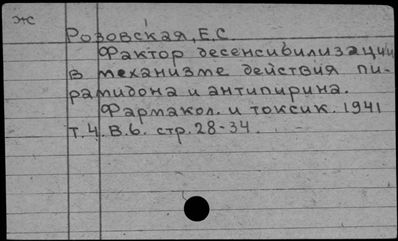 жс
Розовская, Е.С.
Фактор десенсибилизации
в механизме действия пи-
рамидона и антипирина.
Фармакол. и токсик. 1941
т.4. В.6. стр. 28-34.